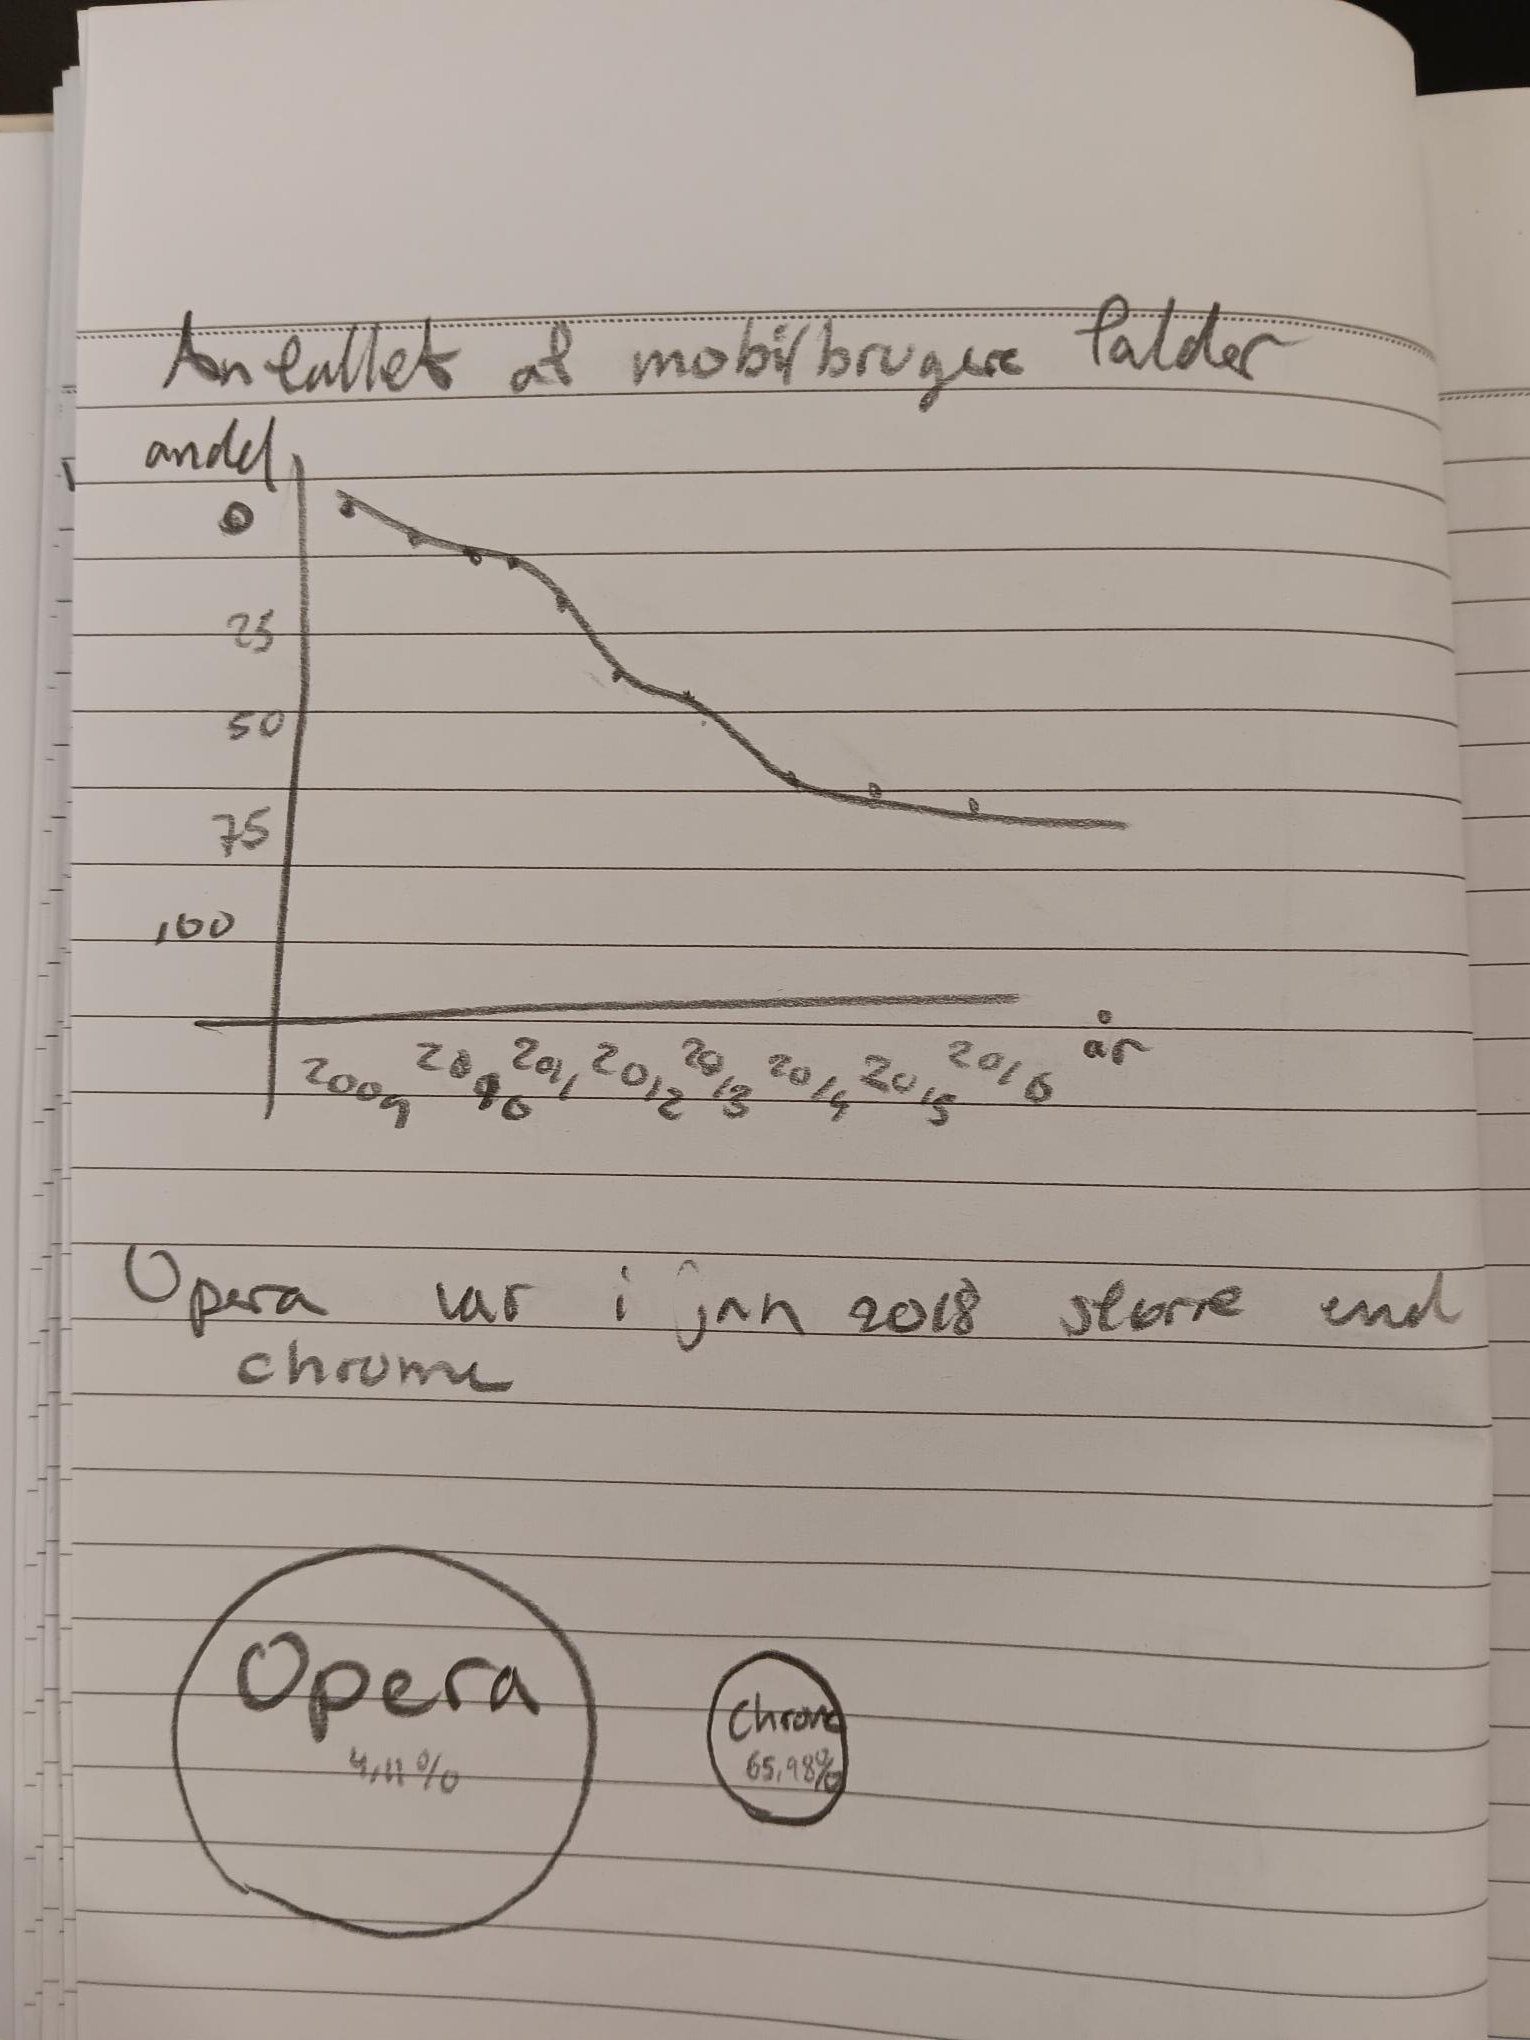 Antallet af mobilbrugere falder
andel
0
25
50
75
100
2009 2010 2011 2012 2013 2014 2015 2016 år
Opera var i jan 2018 større end
chrome
Opera
4,11%
Chrome
65,98%